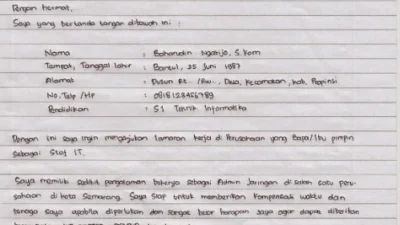 Dengan hormat,
Saya yang bertanda tangan dibawah ini :
Nama : Baharudin Ngatijo, S.Kom
Tempat, Tanggal Lahir : Bantul, 25 Juni 1987
Alamat : Dusun Rt.. /Rw.., Desa, Kecamatan, Kab, Propinsi
No. Telp /HP : 0818128456789
Pendidikan : S1 Teknik Informatika
Dengan ini saya ingin mengajukan lamaran kerja di Perusahaan yang Bapa/Ibu pimpin
sebagai Staf IT.
Saya memiliki sedikit pengalaman bekerja sebagai Admin Jaringan di salah satu peru-
sahaan di kota Semarang. Saya siap untuk memberikan kompensasi waktu dan
tenaga saya apabila diperlukan dan sangat besar harapan saya agar dapat diberikan